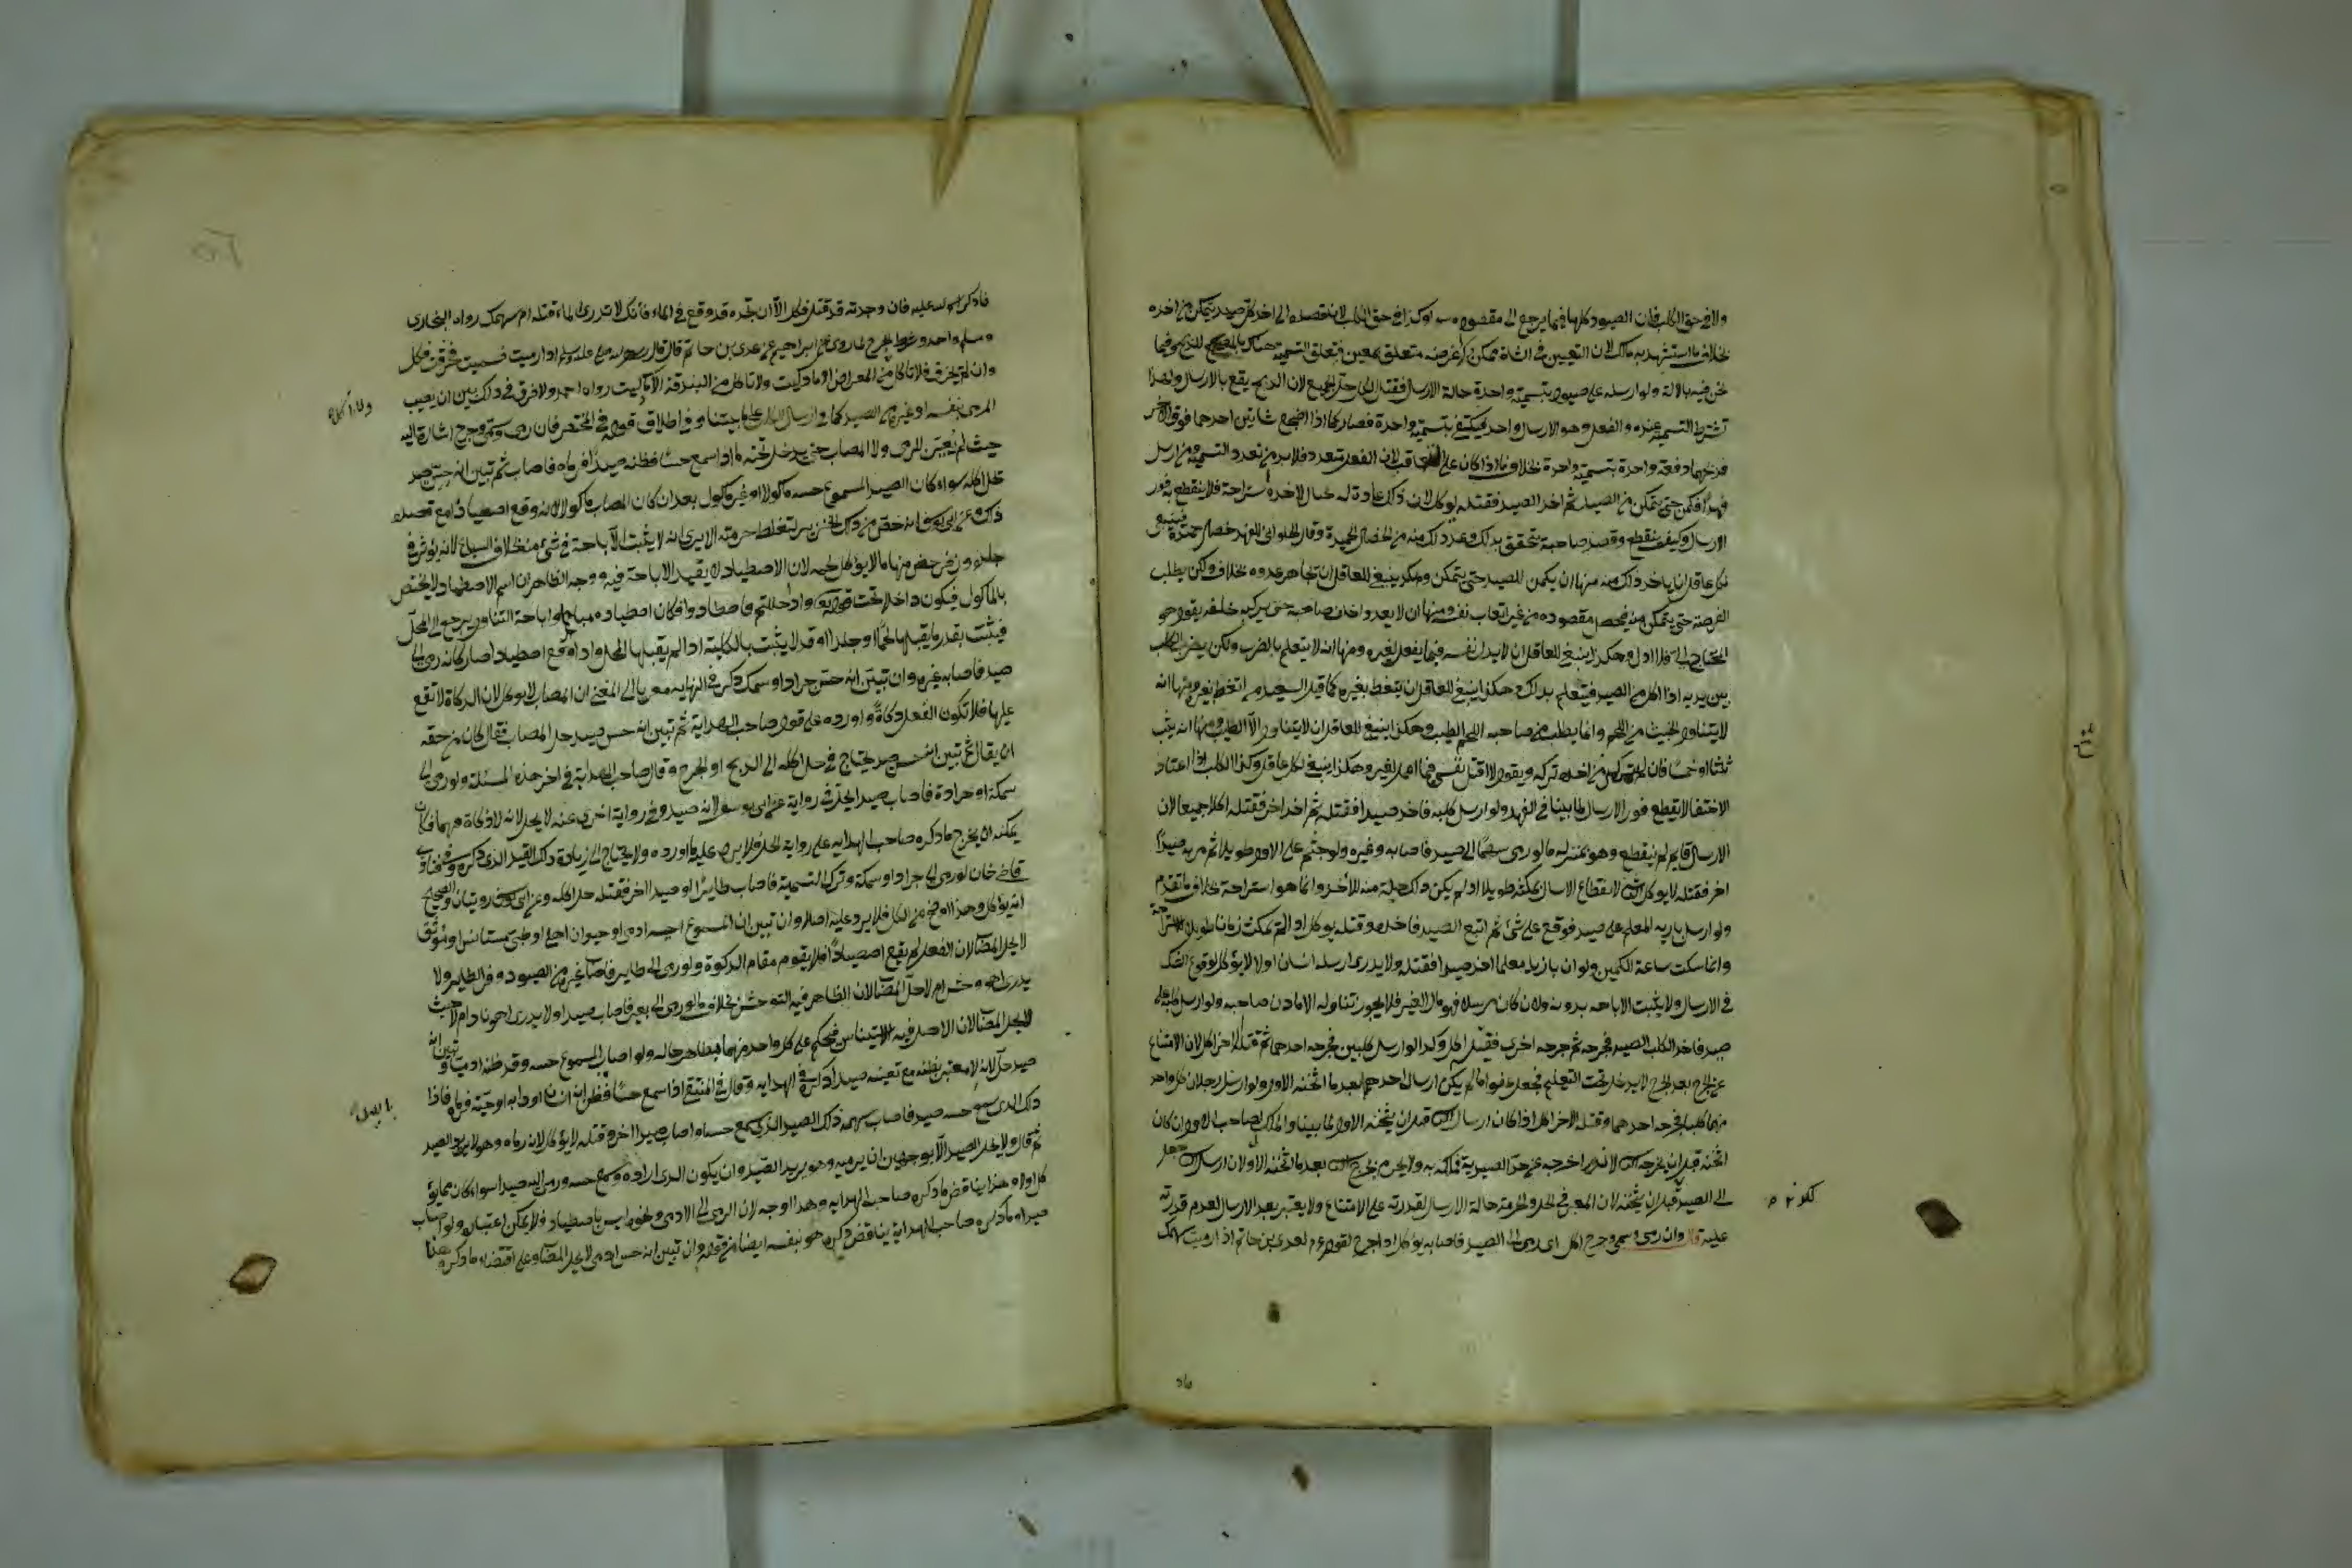 ولا في حق الكلب فان الصيود كلها فيما يرجع الى مقصوده سواء وكذا في حق الكلب لان قصده الى اخذ كل صيد يتمكن من اخذه
بخلاف ما استشهد به مالك لان التعيين في الشاة ممكن وكذا غرضه متعلق بمعين فتعلق التسمية هناك بالمضجع للذبح وفيما
نحن فيه بالالة ولو ارسله على صيود بتسمية واحدة حالة الارسال فقتل الكل حل الجميع لان الذبح يقع بالارسال ولهذا
تشترط التسمية عنده والفعل وهو الارسال واحد فيكتفى بتسمية واحدة فصار كما اذا اضجع شاتين احدهما فوق الاخرى
فذبحهما دفعة واحدة بتسمية واحدة بخلاف ما اذا كان على التعاقب لان الفعل متعدد فلا بد من تعدد التسمية ومن ارسل
فهدا فكمن حتى يتمكن من الصيد ثم اخذ الصيد فقتله يوكل لان ذلك عادة له يحتال لاخذه لا استراحة فلا ينقطع به فور
الارسال وكيف ينقطع وقصد صاحبه يتحقق بذلك وعد ذلك منه من الخصال الحميدة وقال الحلواني للفهد خصال حميدة فينبغي
لكل عاقل ان ياخذ ذلك منه منها ان يكمن للصيد حتى يتمكن وهكذا ينبغي للعاقل ان لا يجاهر عدوه بخلاف ولكن يطلب
الفرصة حتى يتمكن منه فيحصل مقصوده من غير اتعاب نفسه ومنها ان لا يعدو خلف صاحبه حتى يركبه خلفه يقول هو
المحتاج الى فلا اذل وهكذا ينبغي للعاقل ان لا يذل نفسه فيما يفعل لغيره ومنها انه لا يتعلم بالضرب ولكن يضرب الكلب
بين يديه اذا اكل من الصيد فيتعلم بذلك وهكذا ينبغي للعاقل ان يتعظ بغيره كما قيل السعيد من اتعظ بغيره ومنها انه
لا يتناول الخبيث من اللحم وانما يطلب من صاحبه اللحم الطيب وهكذا ينبغي للعاقل ان لا يتناول الا الطيب ومنها انه يثب
ثلثا او خمسا فان لم يتمكن من اخذه تركه ويقول لا اقتل نفسي فيما اعمل لغيري وهكذا ينبغي لكل عاقل وكذا الكلب اذا اعتاد
الاختفا لا يقطع فور الارسال لما بينا في الفهد ولو ارسل كلبه فاخذ صيدا فقتله ثم اخذ اخر فقتله اكلا جميعا لان
الارسال قايم لم ينقطع وهو بمنزلة ما لو رمى سهما الى صيد فاصابه وغيره ولو جثم على الاول طويلا ثم مر به صيد
اخر فقتله لا يوكل الثاني لانقطاع الارسال بمكثه طويلا اذ لم يكن ذلك حيلة منه للاخذ وانما هو استراحة بخلاف ما تقدم
ولو ارسل بازيه المعلم على صيد فوقع على شئ ثم اتبع الصيد فاخذه وقتله يوكل اذا لم يمكث زمانا طويلا للاستراحة
وانما مكث ساعة للكمين ولو ان بازيا معلما اخذ صيدا فقتله ولا يدرى ارسله انسان او لا لا يؤكل لوقوع الشك
في الارسال ولا يثبت الاباحة بدونه ولان كان مرسلا فهو مال الغير فلا يجوز تناوله الا باذن صاحبه ولو ارسل كلبه على
صيد فاخذ الكلب الصيد فجرحه ثم جرحه اخرى فقتله اكل وكذا لو ارسل كلبين فجرحه احدهما ثم قتله الاخر اكل لان الامتناع
عن الجرح بعد الجرح لا يدخل تحت التعليم فجعل عفوا ما لم يكن ارسال احدهما بعد ما اثخنه الاول ولو ارسل رجلان كل واحد
منهما كلبا فجرحه احدهما وقتله الاخر اكل اذا كان ارسال الثاني قبل ان يثخنه الاول لما بينا والملك لصاحب الاول ان كان
اثخنه قبل ان يجرحه الثاني لانه اخرجه عن حد الصيدية فملكه به ولا يحرم بجرح الثاني بعد ما اثخنه الاول لان ارسال الثاني حصل
الى الصيد قبل ان يثخنه لان المعتبر في الحل والحرمة حالة الارسال لقدرته على الامتناع ولا يعتبر بعد الارسال لعدم قدرته
عليه قال وان رمى وسمى وجرح اكل اى رمى الى الصيد فاصابه يؤكل اذا جرح لقوله ءم لعدى بن حاتم اذا رميت سهمك
فاذكر اسم الله عليه فان وجدته قد قتل فكل الا ان تجده قد وقع في الماء فانك لا تدرى الماء قتله ام سهمك رواه البخارى
ومسلم واحمد وشرط الجرح لما روى عن ابراهيم عن عدى بن حاتم قال قال رسول الله صلى الله عليه وسلم اذا رميت فسميت فخزقت فكل
وان لم تخزق فلا تاكل من المعراض الا ما ذكيت ولا تاكل من البندقة الا ما ذكيت رواه احمد ولا فرق في ذلك بين ان يصيب
المرمى نفسه او غيره من الصيد كما في ارسال الكلب على ما بينا وفي اطلاق قوله في المختصر فان رمى وسمى وجرح اشارة اليه
حيث لم يعين المرمى ولا المصاب حتى يدخل تحته ما اذا سمع حسا فظنه صيدا فرماه فاصاب ثم تبين انه حس صيد
حل اكله سواء كان الصيد المسموع حسه ماكولا او غير ماكول بعد ان كان المصاب ماكولا لانه وقع اصطيادا مع قصده
ذلك وعن ابي يوسف انه خص من ذلك الخنزير لتغلظ حرمته الا يرى انه لا يثبت الاباحة في شئ منه بخلاف السباع لانه يؤثر في
جلده وزفر خص منها ما لا يؤكل لحمه لان الاصطياد لا يفيد الاباحة فيه ووجه الظاهر ان اسم الاصطياد لا يختص
بالماكول فيكون داخلا تحت قوله تعالى واذا حللتم فاصطادوا فكان اصطياده مباحا واباحة التناول يرجع الى المحل
فيثبت بقدر ما يقبلها لحما او جلدا وقد لا يثبت بالكلية اذا لم يقبلها المحل واذا وقع اصطيادا صار كانه رمى الى
صيد فاصابه غيره وان تبين انه حس جراد او سمك ذكر في النهاية معزيا الى المغني ان المصاب لا يوكل لان الذكاة لا تقع
عليها فلا تكون الفعل ذكاة واورده على قول صاحب الهداية ثم تبين انه حس صيد حل المصاب فقال كان من حقه
ان يقال ثم تبين انه حس صيد يحتاج في حل اكله الى الذبح او الجرح وقال صاحب الهداية في اخر هذه المسئلة ولو رمى الى
سمكة او جرادة فاصاب صيدا يحل في رواية عن ابي يوسف لانه صيد وفي رواية اخرى عنه لا يحل لانه لا ذكاة فيهما فكان
يمكنه ان يخرج ما ذكره صاحب الهداية على رواية الحل فلا يرد عليه ما اورده ولا يحتاج الى زيادة ذلك القيد الذى ذكره وفي فتاوى
قاضي خان لو رمى الى جراد او سمكة وترك التسمية فاصاب طايرا او صيدا اخر فقتله حل اكله وعن ابي يوسف روايتان والصحيح
انه يؤكل وهذا اوضح من الكل فلا يرد عليه اصلا وان تبين ان المسموع حسه ادمى او حيوان اهلي او ظبي مستانس او موثق
لا يحل المصاب لان الفعل لم يقع اصطيادا فلا يقوم مقام الذكوة ولو رمى الى طاير فاصاب غيره من الصيود وفر الطاير ولا
يدرى اهو وحشى ام لا حل المصاب لان الظاهر فيه التوحش بخلاف ما لو رمى الى بعير فاصاب صيدا ولا يدرى اهو ناد ام لا حيث
لا يحل المصاب لان الاصل فيه الاستيناس فيحكم على كل واحد منهما بظاهر حاله ولو اصاب المسموع حسه وقد ظنه ادميا وتبين انه
صيد حل لانه لا معتبر بظنه مع تعينه صيدا ذكره في الهداية وقال في المنتقى اذا سمع حسا فظن انه انسان او دابة او حية فرماه فاذا
ذلك الذى سمع حسه صيد فاصاب سهمه ذلك الصيد الذى سمع حسه او اصاب صيدا اخر وقتله لا يؤكل لانه رماه وهو لا يريد الصيد
ثم قال ولا يحل الصيد الا بوجهين ان يرميه وهو يريد الصيد وان يكون الذى اراده وسمع حسه ورمى اليه صيدا سواء كان مما يؤ
كل او لا وهذا يناقض ما ذكره صاحب الهداية وهذا اوجه لان الرمى الى الادمى ونحوه ليس باصطياد فلا يمكن اعتباره ولو اصاب
صيدا وما ذكره صاحب الهداية يناقض ما ذكره هو نفسه ايضا من قوله وان تبين انه حس ادمى لا يحل المصاب وعلى اقتضاء ما ذكره هنا